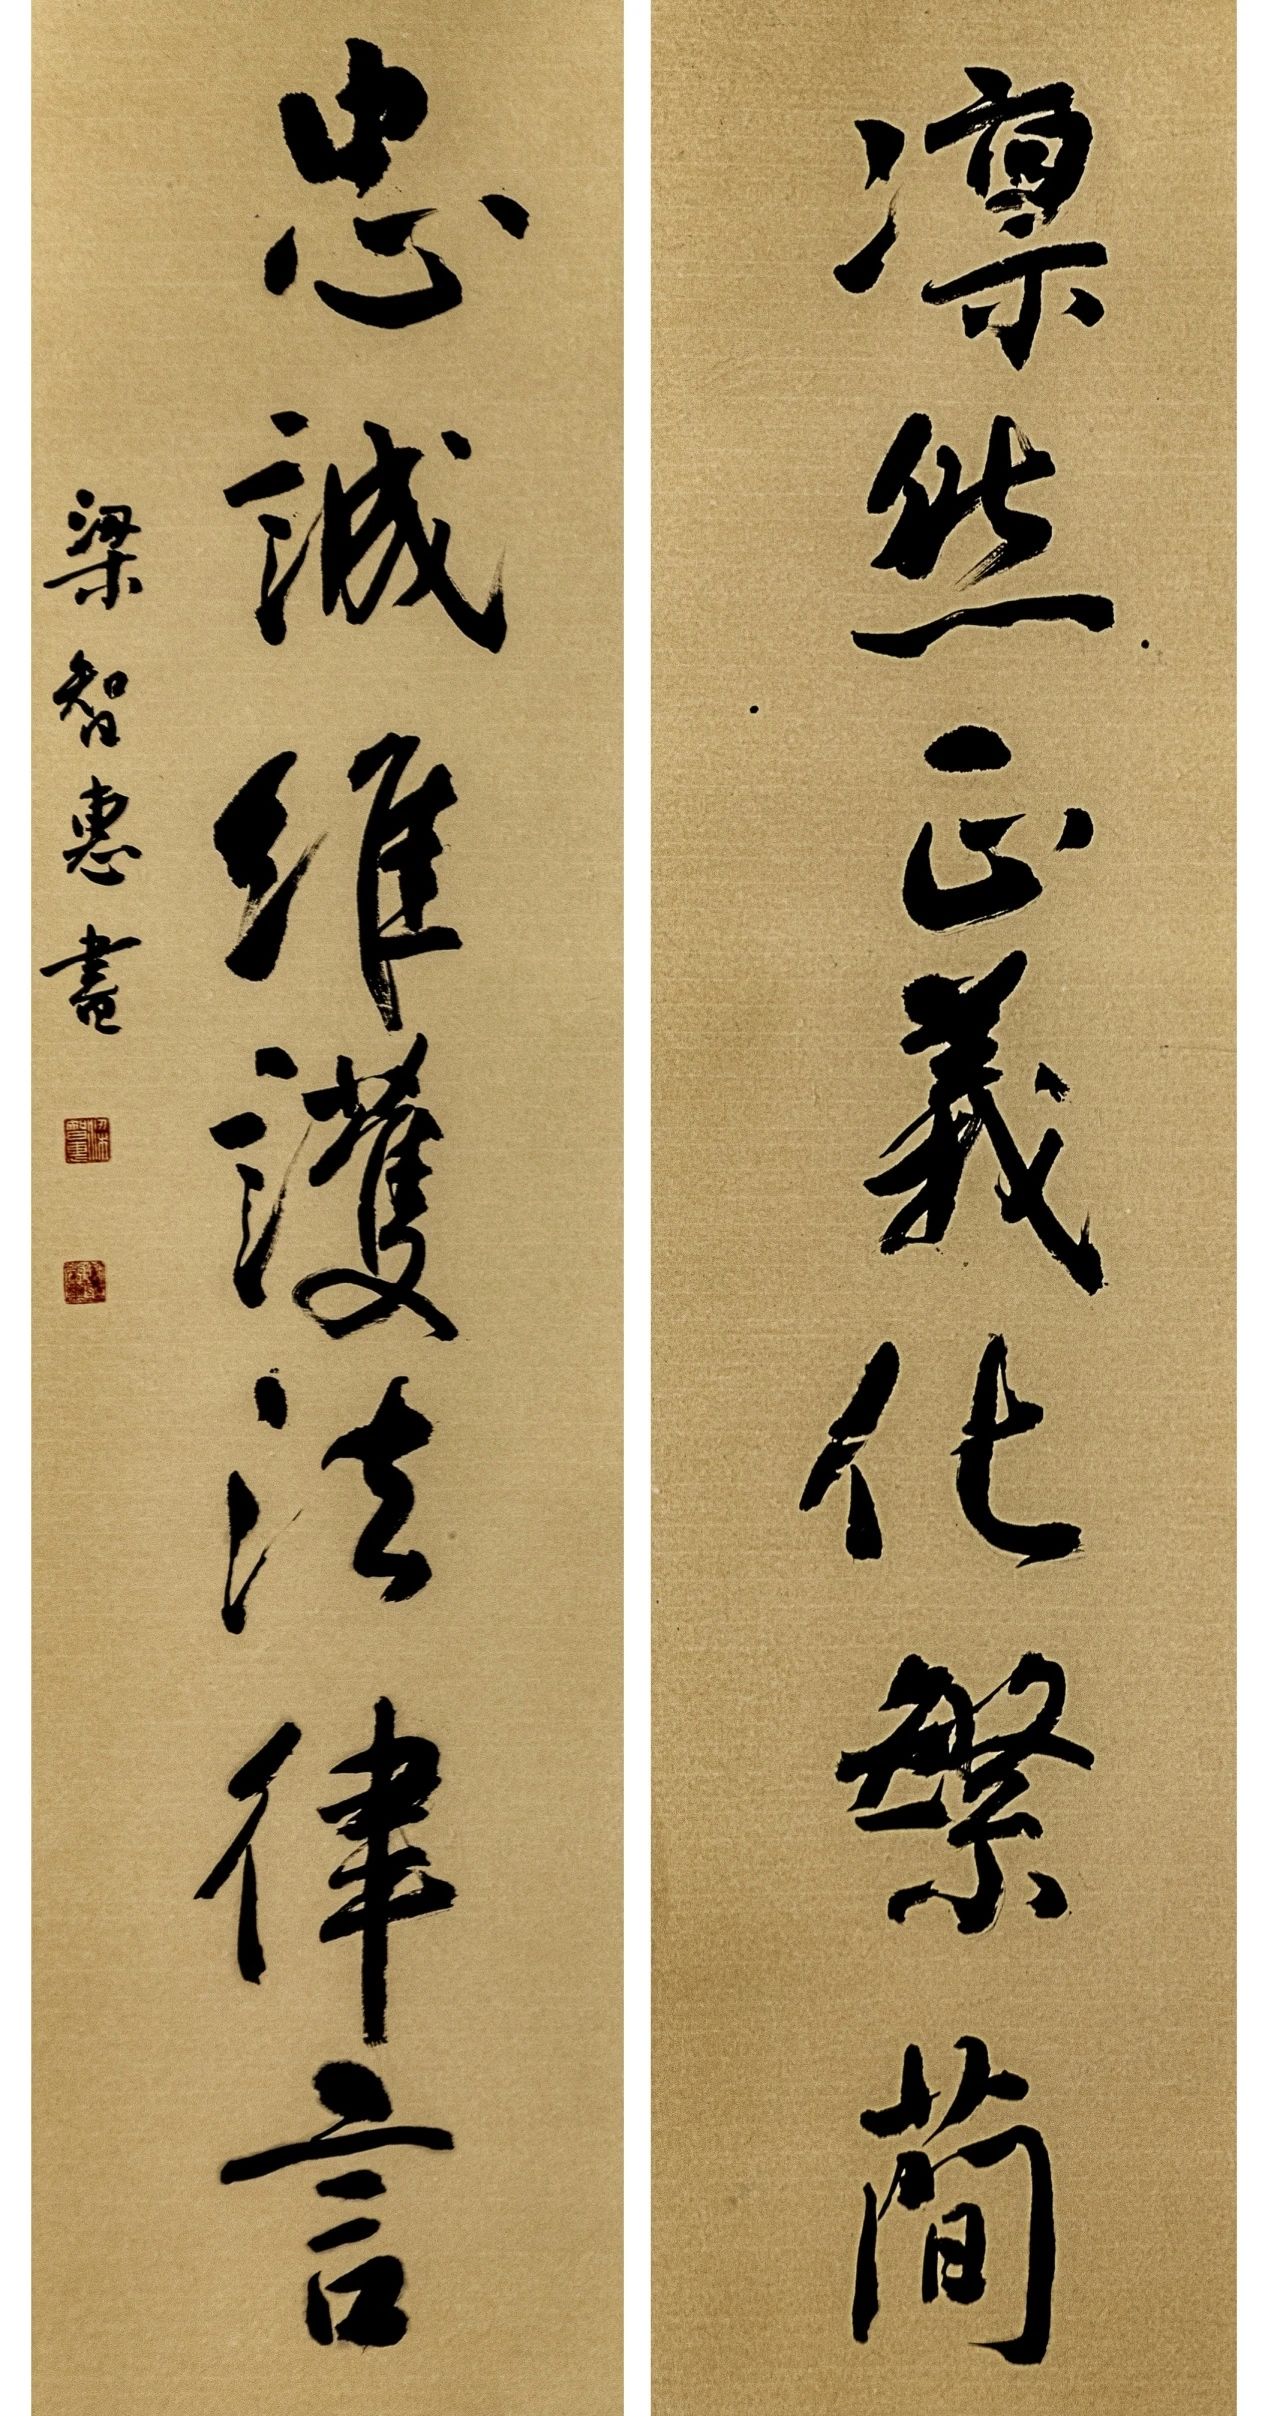 凛然正義化繁簡
忠誠維護法律言
梁智惠書